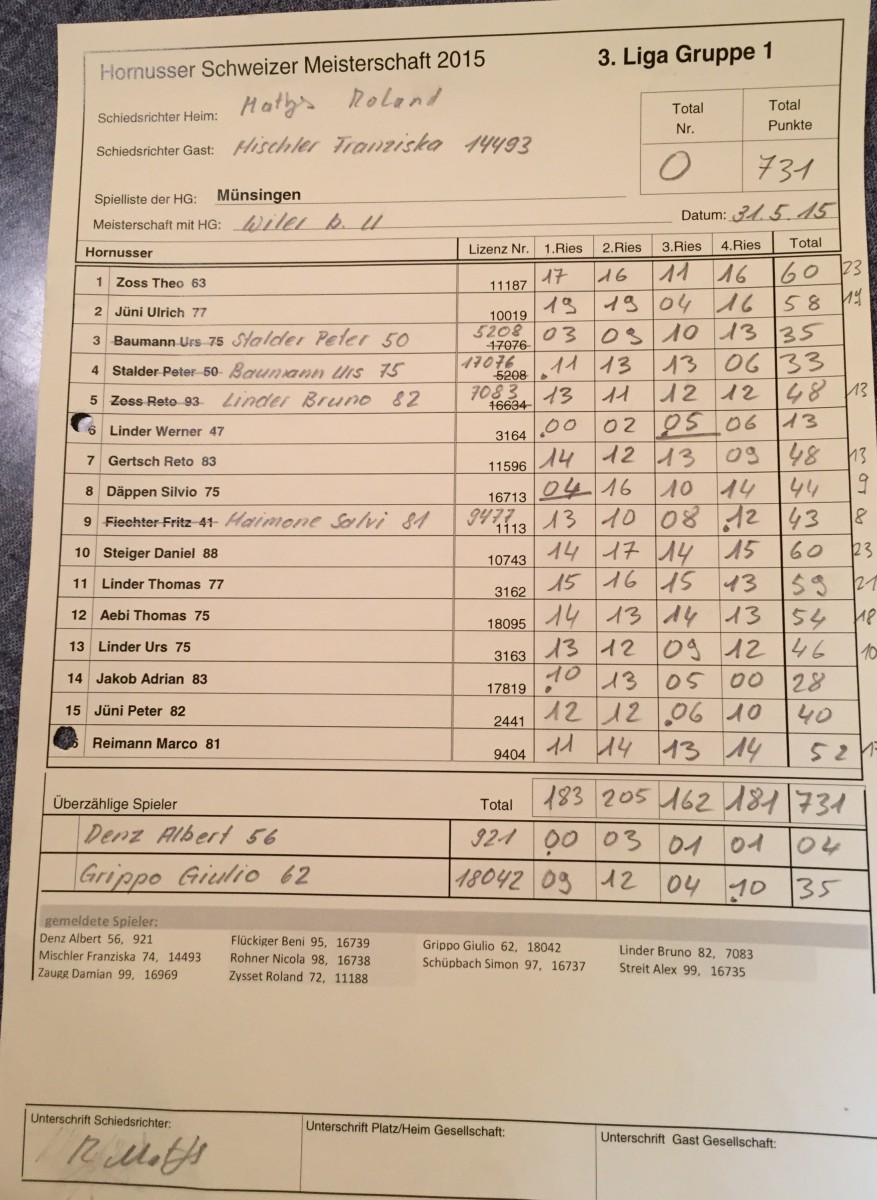 Hornusser Schweizer Meisterschaft 2015
3. Liga Gruppe 1
Schiedsrichter Heim: Mathys Roland
Schiedsrichter Gast: Mischler Franziska 14493
Total Nr. Total Punkte
0 731
Spielliste der HG: Münsingen
Meisterschaft mit HG: Wiler b. U
Datum: 31.5.15
Hornusser Lizenz Nr. 1.Ries 2.Ries 3.Ries 4.Ries Total
1 Zoss Theo 63 11187 17 16 11 16 60 23
2 Jüni Ulrich 77 10019 19 19 04 16 58 19
3 Baumann Urs 75 Stalder Peter 50 5208 17076 03 09 10 13 35
4 Stalder Peter 50 Baumann Urs 75 17076 5208 .11 13 13 06 33
5 Zoss Reto 93 Linder Bruno 82 7083 16634 13 11 12 12 48 13
6 Linder Werner 47 3164 .00 02 05 06 13
7 Gertsch Reto 83 11596 14 12 13 09 48 13
8 Däppen Silvio 75 16713 04 16 10 14 44 9
9 Fiechter Fritz 41 Maimone Salvi 81 9477 1113 13 10 08 .12 43 8
10 Steiger Daniel 88 10743 14 17 14 15 60 23
11 Linder Thomas 77 3162 15 16 15 13 59 21
12 Aebi Thomas 75 18095 14 13 14 13 54 18
13 Linder Urs 75 3163 13 12 09 12 46 10
14 Jakob Adrian 83 17819 .10 13 05 00 28
15 Jüni Peter 82 2441 12 12 .06 10 40
6 Reimann Marco 81 9404 11 14 13 14 52
Überzählige Spieler Total 183 205 162 181 731
Denz Albert 56 921 .00 03 01 01 04
Grippo Giulio 62 18042 09 12 04 .10 35
gemeldete Spieler:
Denz Albert 56, 921 Flückiger Beni 95, 16739 Grippo Giulio 62, 18042 Linder Bruno 82, 7083
Mischler Franziska 74, 14493 Rohner Nicola 98, 16738 Schüpbach Simon 97, 16737 Streit Alex 99, 16735
Zaugg Damian 99, 16969 Zysset Roland 72, 11188
Unterschrift Schiedsrichter: Unterschrift Platz/Heim Gesellschaft: Unterschrift Gast Gesellschaft: